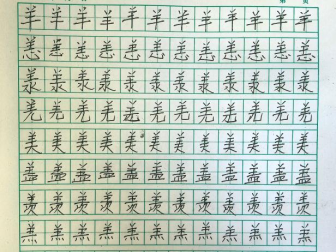 第 页
羊羊羊羊羊羊羊羊羊羊羊羊
恙恙恙恙恙恙恙恙恙恙恙恙
羕羕羕羕羕羕羕羕羕羕羕羕
羌羌羌羌羌羌羌羌羌羌羌羌
美美美美美美美美美美美美
盖盖盖盖盖盖盖盖盖盖盖盖
羡羡羡羡羡羡羡羡羡羡羡羡
羔羔羔羔羔羔羔羔羔羔羔羔